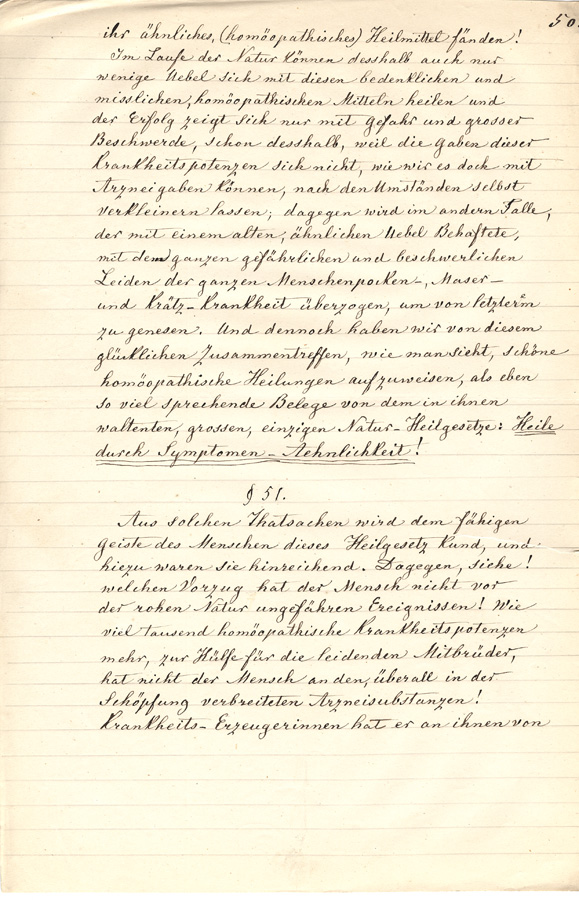 50.
ihr ähnliches, (homöopathisches) Heilmittel fänden!
Im Laufe der Natur können desshalb auch nur
wenige Uebel sich mit diesen bedenklichen und
misslichen, homöopathischen Mitteln heilen und
der Erfolg zeigt sich nur mit Gefahr und grosser
Beschwerde, schon desshalb, weil die Gaben dieser
Krankheitspotenzen sich nicht, wie wir es doch mit
Arzneigaben können, nach den Umständen selbst
verkleinern lassen; dagegen wird im andern Falle,
der mit einem alten, ähnlichen Uebel Behaftete,
mit dem ganzen gefährlichen und beschwerlichen
Leiden der ganzen Menschenpocken-, Maser-
und Krätz-Krankheit überzogen, um von letzterm
zu genesen. Und dennoch haben wir von diesem
glücklichen Zusammentreffen, wie man sieht, schöne
homöopathische Heilungen aufzuweisen, als eben
so viel sprechende Belege von dem in ihnen
waltenten, grossen, einzigen Natur-Heilgesetze: Heile
durch Symptomen-Aehnlichkeit!
§ 51.
Aus solchen Thatsachen wird dem fähigen
Geiste des Menschen dieses Heilgesetz kund, und
hiezu waren sie hinreichend. Dagegen, siehe!
welchen Vorzug hat der Mensch nicht vor
der rohen Natur ungefähren Ereignissen! Wie
viel tausend homöopathische Krankheitspotenzen
mehr, zur Hülfe für die leidenden Mitbrüder,
hat nicht der Mensch an den, überall in der
Schöpfung verbreiteten Arzneisubstanzen!
Krankheits-Erzeugerinnen hat er an ihnen von